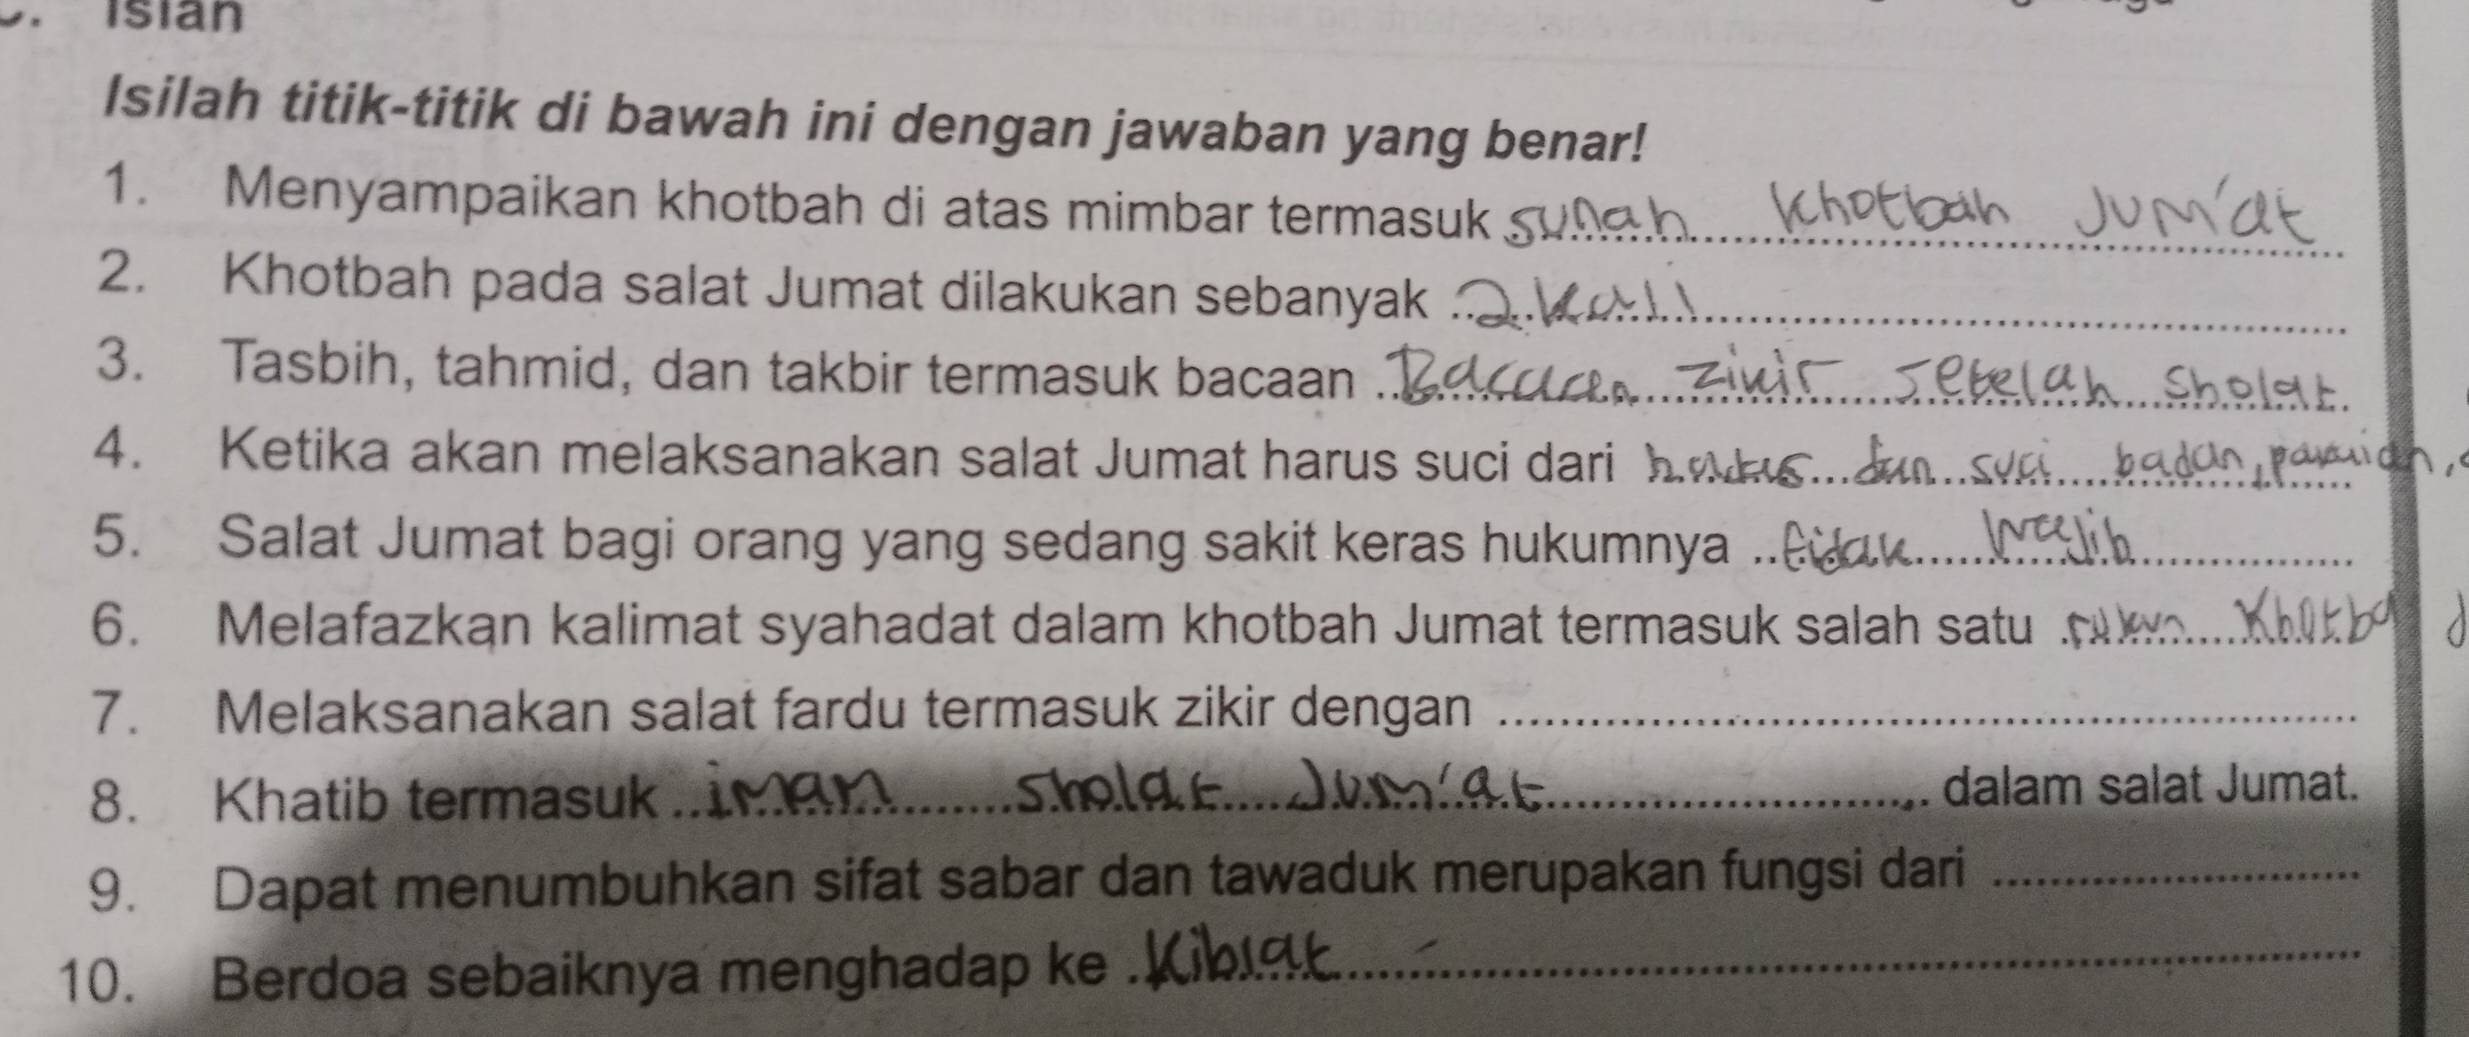 Isian
Isilah titik-titik di bawah ini dengan jawaban yang benar!
1. Menyampaikan khotbah di atas mimbar termasuk sunah khotbah Jum'at
2. Khotbah pada salat Jumat dilakukan sebanyak 2 kali
3. Tasbih, tahmid, dan takbir termasuk bacaan Bacaan zikir setelah sholat.
4. Ketika akan melaksanakan salat Jumat harus suci dari hadas dan suci badan, pakaian,
5. Salat Jumat bagi orang yang sedang sakit keras hukumnya tidak wajib
6. Melafazkan kalimat syahadat dalam khotbah Jumat termasuk salah satu rukun Khotba
7. Melaksanakan salat fardu termasuk zikir dengan ........
8. Khatib termasuk imam sholat Jum'at ........ dalam salat Jumat.
9. Dapat menumbuhkan sifat sabar dan tawaduk merupakan fungsi dari ........
10. Berdoa sebaiknya menghadap ke Kiblat